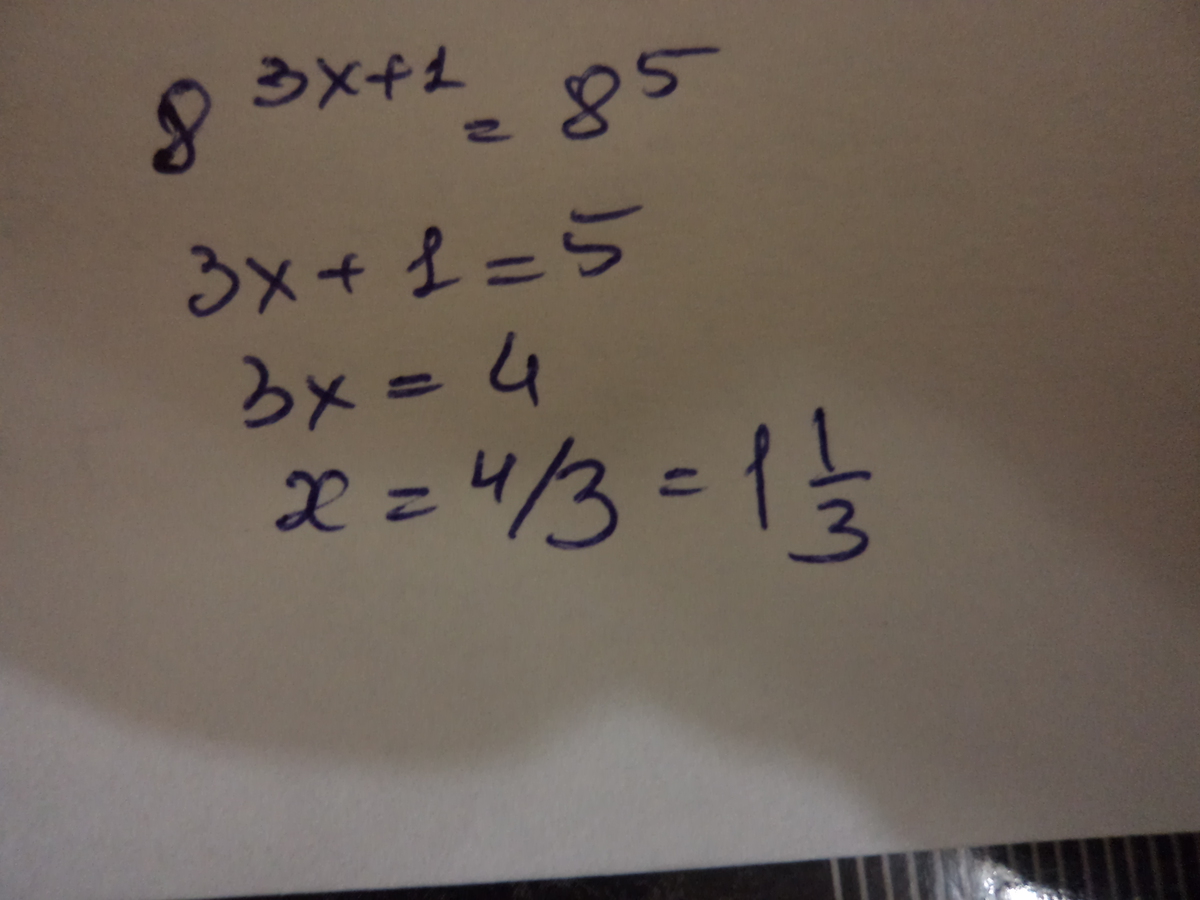 8^{3x+1} = 8^5
3x + 1 = 5
3x = 4
x = 4/3 = 1 1/3